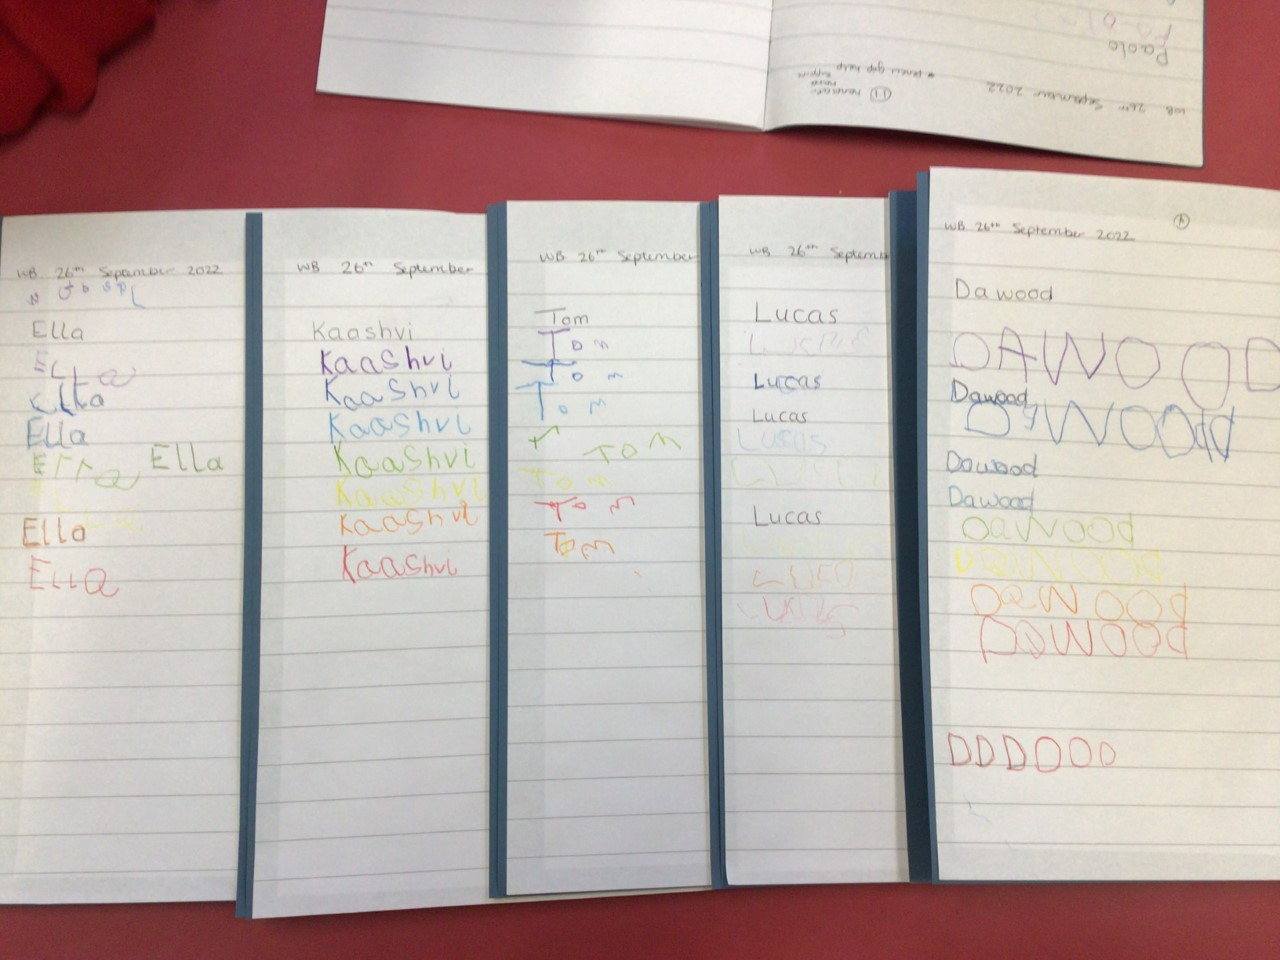 WB 26th September 2022
Paolo
11
* pencil grip help
WB 26th September 2022
Ella
ELLa
Ella
Ella
Ella
Ella
ELLa
WB 26th September
Kaashvi
Kaashvi
Kaashvi
Kaashvi
Kaashvi
Kaashvi
Kaashvi
Kaashvi
WB 26th September
Tom
Tom
Tom
Tom
Tom
Tom
Tom
Tom
WB 26th Septemb
Lucas
Lucas
Lucas
Lucas
Lucas
WB 26th September 2022
4
Dawood
DAWOOD
Dawood
DaWOOdd
Dawood
Dawood
DaWOOd
DaWOOd
DaWOOd
DaWOOd
DDDOOD